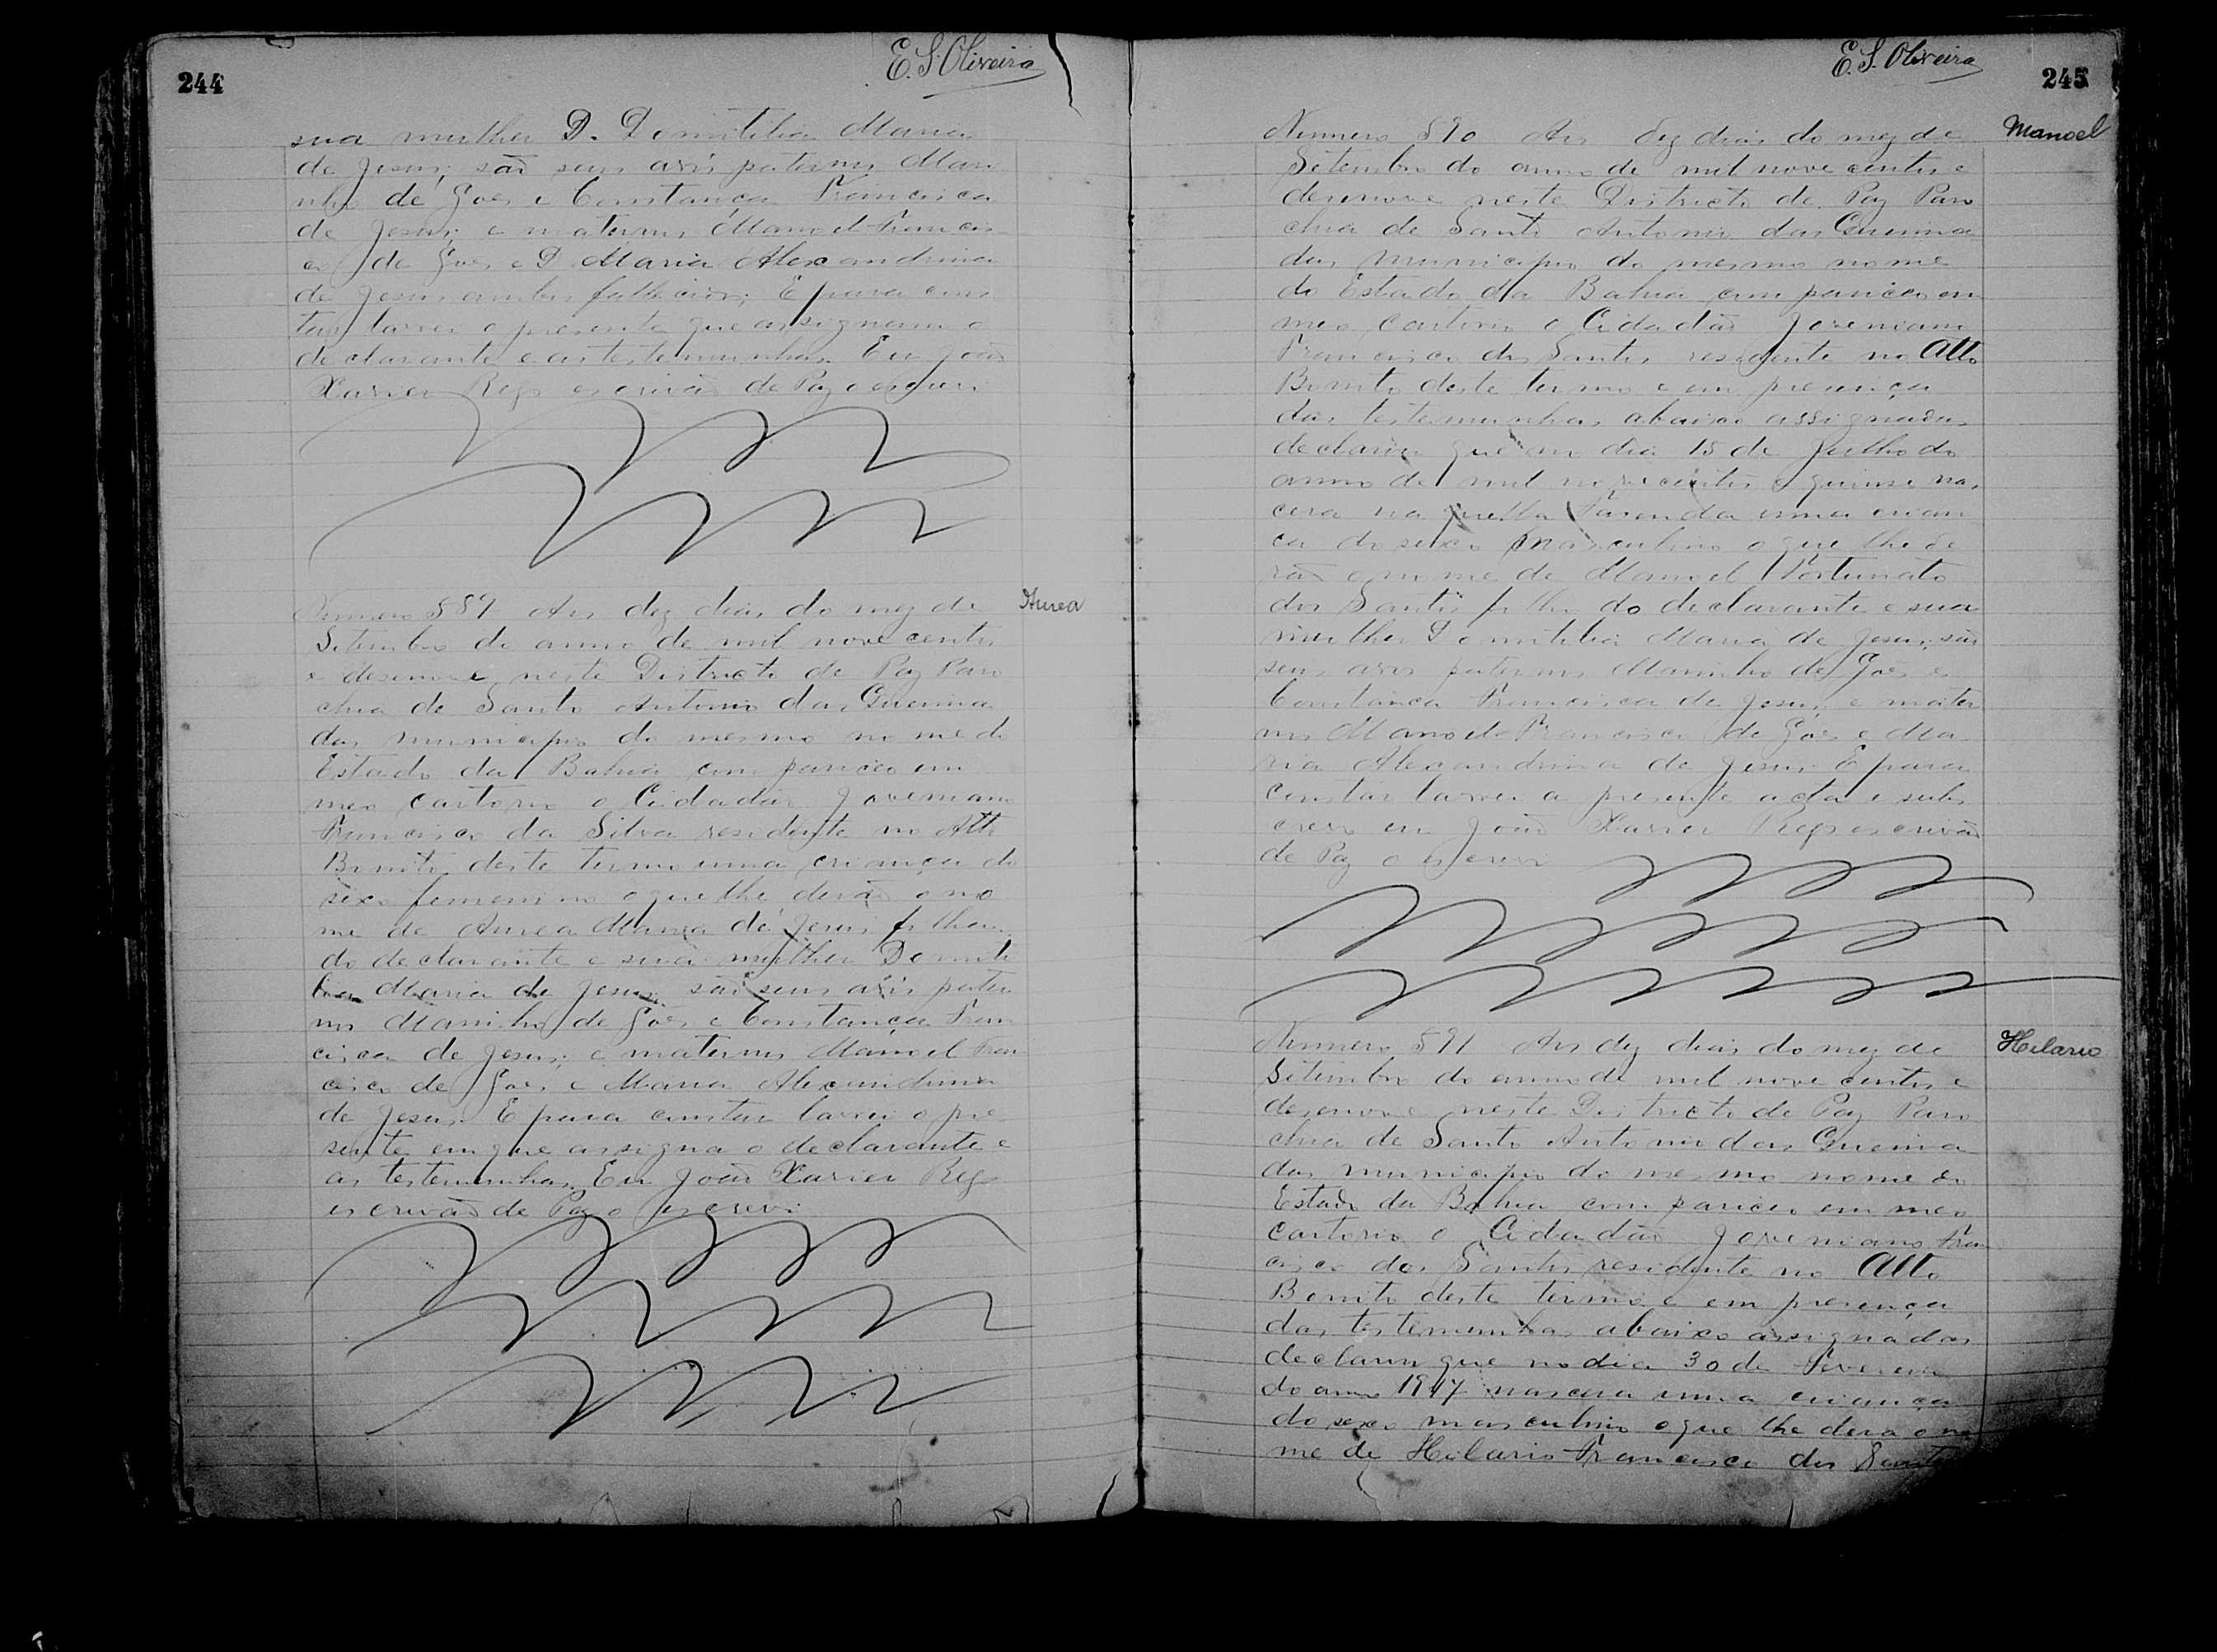 244
E. S. Oliveira
sua mulher D. Domitilia Maria
de Jesus; são seus avós paternos Mari
nho de Goes e Constança Francisca
de Jesus; e maternos Manoel Francis
co de Goes e D. Maria Alexandrina
de Jesus ambos fallecidos; E para cons
tar lavrei o presente que assignam o
declarante e as testemunhas. Eu João
Xavier Rego escrivão de Paz o escrevi
Numero 889 Aos dez dias do mez de
Aurea
Setembro do anno de mil nove centos
e desenove neste Districto de Paz Paro
chia de Santo Antonio das Queima
das municipio do mesmo nome do
Estado da Bahia com pareceo em
meo cartorio o Cidadão Joveniano
Francisco da Silva residente no Alto
Bonito deste termo uma criança do
sexo femenino o que lhe derão o no
me de Aurea Maria de Jesus filha
do declarante e sua mulher Domiti
lia Maria de Jesus; são seus avós pater
nos Marinho de Goes e Constança Fran
cisca de Jesus; e maternos Manoel Fran
cisco de Goes e Maria Alexandrina
de Jesus. E para constar lavrei o pre
sente em que assigna o declarante e
as testemunhas. Eu João Xavier Rego
escrivão de Paz o escrevi
E. S. Oliveira
245
Numero 890 Aos dez dias do mez de
Manoel
Setembro do anno de mil nove centos e
desenove neste Districto de Paz Paro
chia de Santo Antonio das Queima
das municipio do mesmo nome
do Estado da Bahia com pareceo em
meo cartorio o Cidadão Joveniano
Francisco dos Santos residente no Alto
Bonito deste termo e em presença
das testemunhas abaixo assignadas
declarou que no dia 15 de Julho do
anno de mil novecentos e quinse nas
cera na quella Fasenda uma crian
ça do sexo masculino o que lhe de
rão o nome de Manoel Fortunato
dos Santos filho do declarante e sua
mulher Domitilia Maria de Jesus; são
seus avós paternos Marinho de Goes e
Constança Francisca de Jesus; e mater
nos Manoel Francisco de Goes e Ma
ria Alexandrina de Jesus. E para
constar lavrei a presente acta e subs
crevo eu João Xavier Rego escrivão
de Paz o escrevi
Numero 891 Aos dez dias do mez de
Hilario
Setembro do anno de mil nove centos e
desenove neste Districto de Paz Paro
chia de Santo Antonio das Queima
das municipio do mesmo nome do
Estado da Bahia com pareceo em meo
cartorio o Cidadão Joveniano Fran
cisco dos Santos residente no Alto
Bonito deste termo e em presença
das testemunhas abaixo assignadas
declarou que no dia 30 de Fevereiro
do anno 1917 nascera uma criança
do sexo masculino o que lhe dera o no
me de Hilario Francisco dos Santos